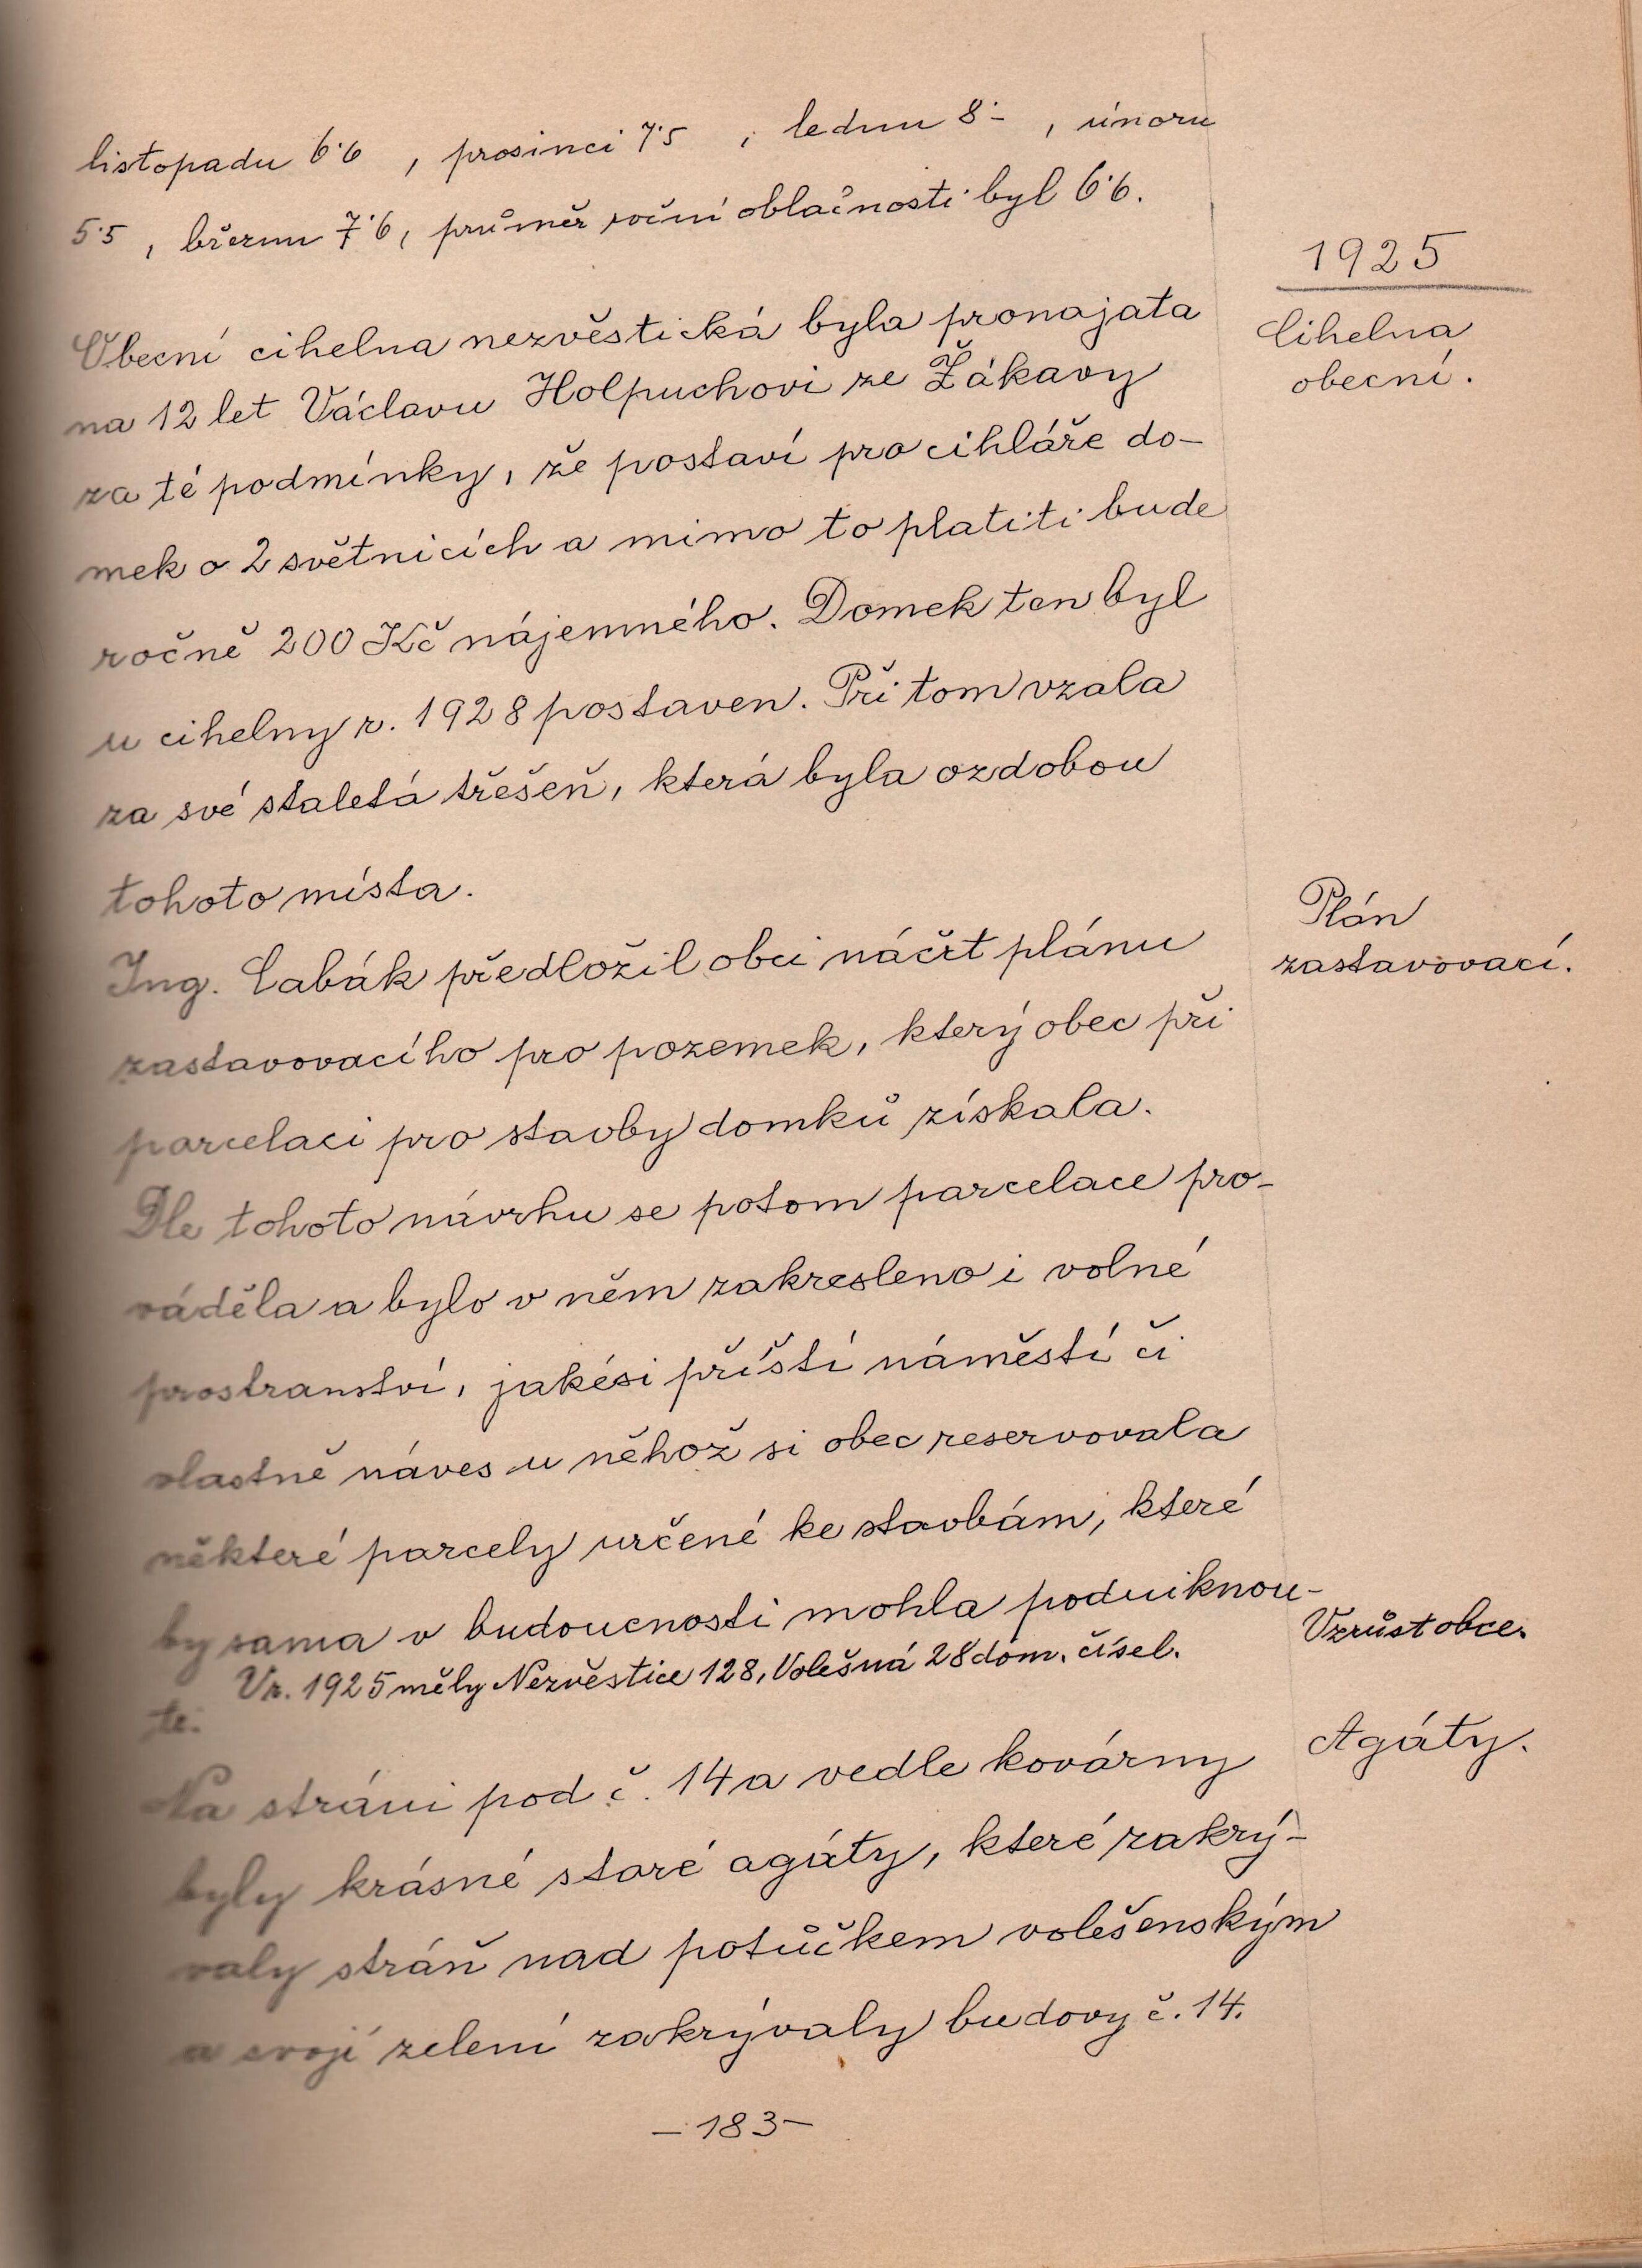 listopadu 6·6 , prosinci 7·5 , lednu 8·- , únoru
5·5 , březnu 7·6, průměr roční oblačnosti byl 6·6.
1925
Obecní cihelna nezvěstická byla pronajata
Cihelna
obecní.
na 12 let Václavu Holpuchovi ze Žákavy
za té podmínky, že postaví pro cihláře do-
mek o 2 světnicích a mimo to platiti bude
ročně 200 Kč nájemného. Domek ten byl
u cihelny r. 1928 postaven. Při tom vzala
za své staletá třešeň, která byla ozdobou
tohoto místa.
Plán
zastavovací.
Ing. Cabák předložil obci náčrt plánu
zastavovacího pro pozemek, který obec při
parcelaci pro stavby domků získala.
Dle tohoto návrhu se potom parcelace pro-
váděla a bylo v něm zakresleno i volné
prostranství, jakési příští náměstí či
vlastně náves u něhož si obec reservovala
některé parcely určené ke stavbám, které
by sama v budoucnosti mohla podniknou-
ti.
Vzrůst obce.
V r. 1925 měly Nezvěstice 128, Volešná 28 dom. čísel.
Agáty.
Na stráni pod č. 14 a vedle kovárny
byly krásné staré agáty, které zakrý-
valy stráň nad potůčkem volešenským
a svojí zelení zakrývaly budovy č. 14.
-183-